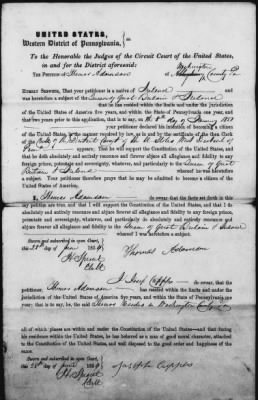 UNITED STATES,
Western District of Pennsylvania, ss
To the Honorable the Judges of the Circuit Court of the United States,
in and for the District aforesaid:
THE PETITION OF Thomas Adamson of Washington County Pa
HUMBLY SHEWETH, That your petitioner is a native of Ireland and
was heretofore a subject of the Queen of Great Britain & Ireland
that he has resided within the limits and under the jurisdiction
of the United States of America five years, and within the State of Pennsylvania one year, and
that two years prior to this application, that is to say, on the
your petitioner declared his intention of becoming a citizen
of the United States, in the manner required by law, as is and by the certificate of the then Clerk
of the
appears: That he will support the Constitution of the United States, and
that he doth absolutely and entirely renounce and forever abjure all allegiance and fidelity to any
foreign prince, potentate and sovereignty, whatever, and particularly to the Queen of Great
Britain & Ireland whereof he was heretofore
a subject. Your petitioner therefore prays that he may be admitted to become a citizen of
the United States of America.
I, Thomas Adamson do swear, that the facts set forth in this
my petition are true, and that I will support the Constitution of the United States, and that I do
absolutely and entirely renounce and abjure forever all allegiance and fidelity to any foreign prince,
potentate and sovereignty, whatever, and particularly do absolutely and entirely renounce and
abjure forever all allegiance and fidelity to the Queen of Great Britain & Ireland
whereof I was heretofore a subject.
Sworn and subscribed in open Court, this
28th day of June 185
Clk
Thomas Adamson
I Joseph Cupps do swear, that
Thomas Adamson has resided within the limits and under the
jurisdiction of the United States five years, and within the State of Pennsylvania one
year; that is to say, he, the said Thomas Resides in Washington County
all of which places are within and under the Constitution of the United States—and that during
his residence within the United States, he has behaved as a man of good moral character, attached
to the Constitution of the United States, and well disposed to the good order and happiness of
the same.
Sworn and subscribed in open Court, this
28th day of June 185
Clk
Joseph Cupps